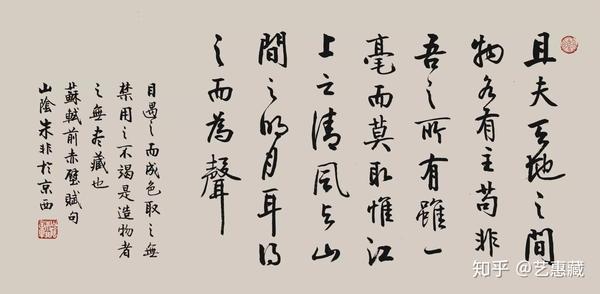 且夫天地之間
物各有主苟非
吾之所有雖一
毫而莫取惟江
上之清風与山
間之明月耳得
之而為聲
目遇之而成色取之無
禁用之不竭是造物者
之無尽藏也
蘇軾前赤壁賦句
山陰朱非於京西
知乎 @艺惠藏